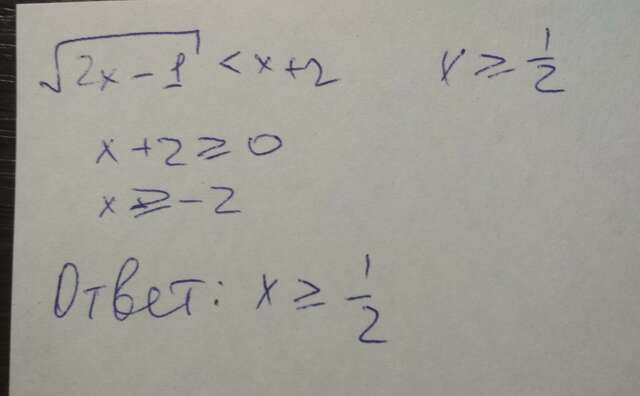 √(2x-1) < x+2    x ≥ 1/2
x+2 ≥ 0
x ≥ -2
Ответ: x ≥ 1/2